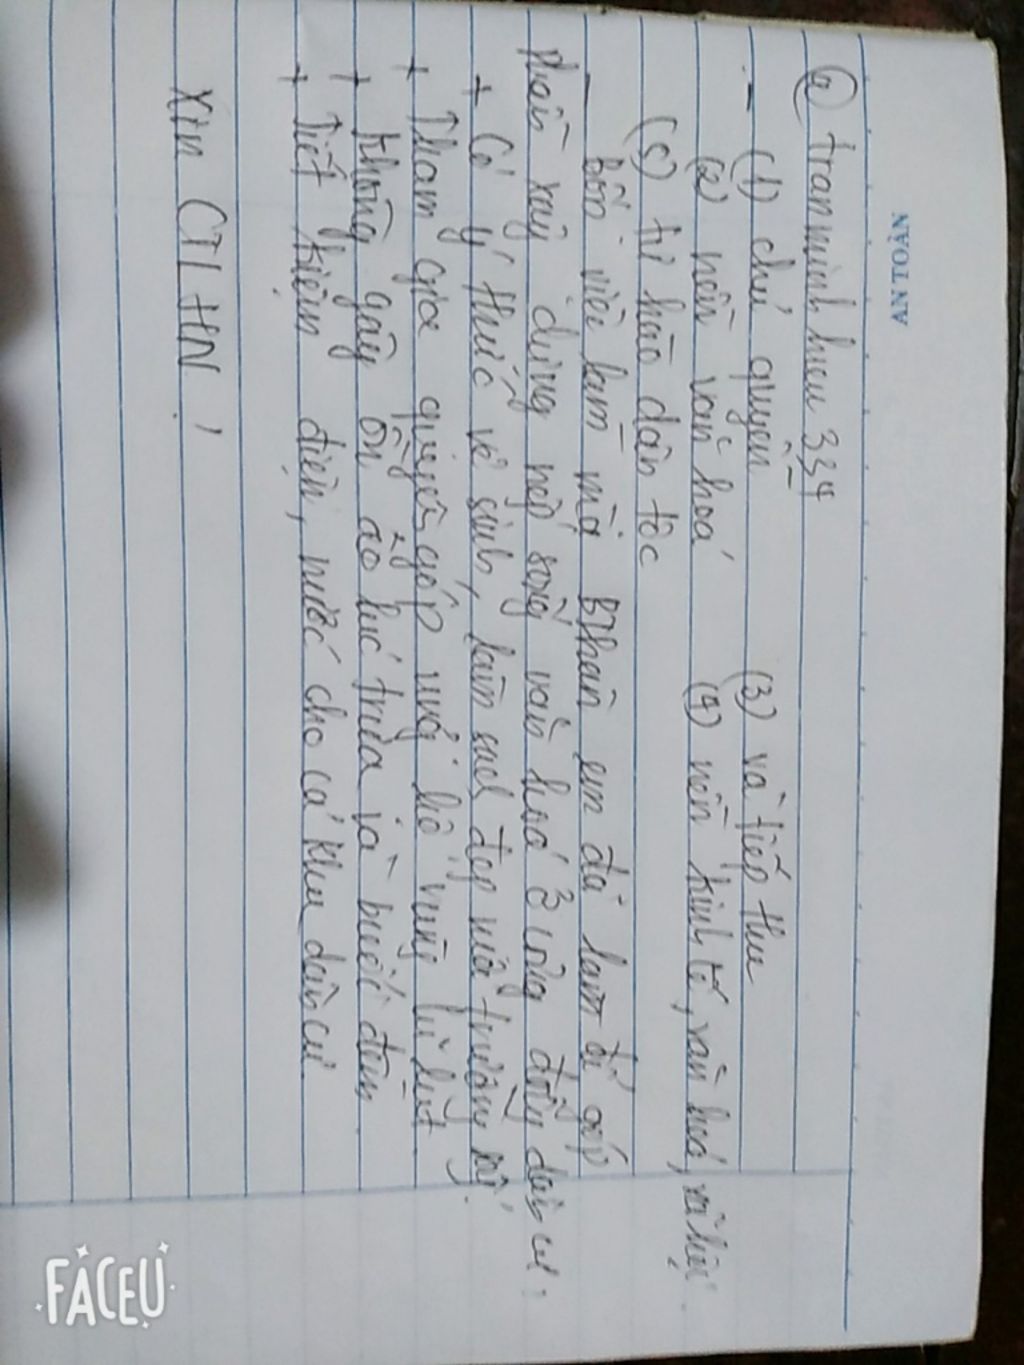 AN TOÀN
@ tranminhhieu 334
- (1) chủ quyền (3) và tiếp thu
(2) nền văn hoá (4) nền kinh tế, văn hoá, xã hội.
(5) tự hào dân tộc
- Bốn việc làm mà Bthân em đã làm để góp
phần xây dựng nếp sống văn hoá ở cộng đồng dân cư:
+ Có ý thức vệ sinh, làm sạch đẹp môi trường
+ Tham gia quyên góp ủng hộ vùng lũ lụt.
+ Không gây ồn ào lúc trưa và buổi đêm.
+ Tiết kiệm điện, nước cho cả khu dân cư.
Xin CTLHN!
FACEU